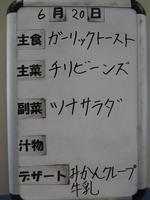 6月20日
主食 ガーリックトースト
主菜 チリビーンズ
副菜 ツナサラダ
汁物
デザート みかんクレープ
牛乳